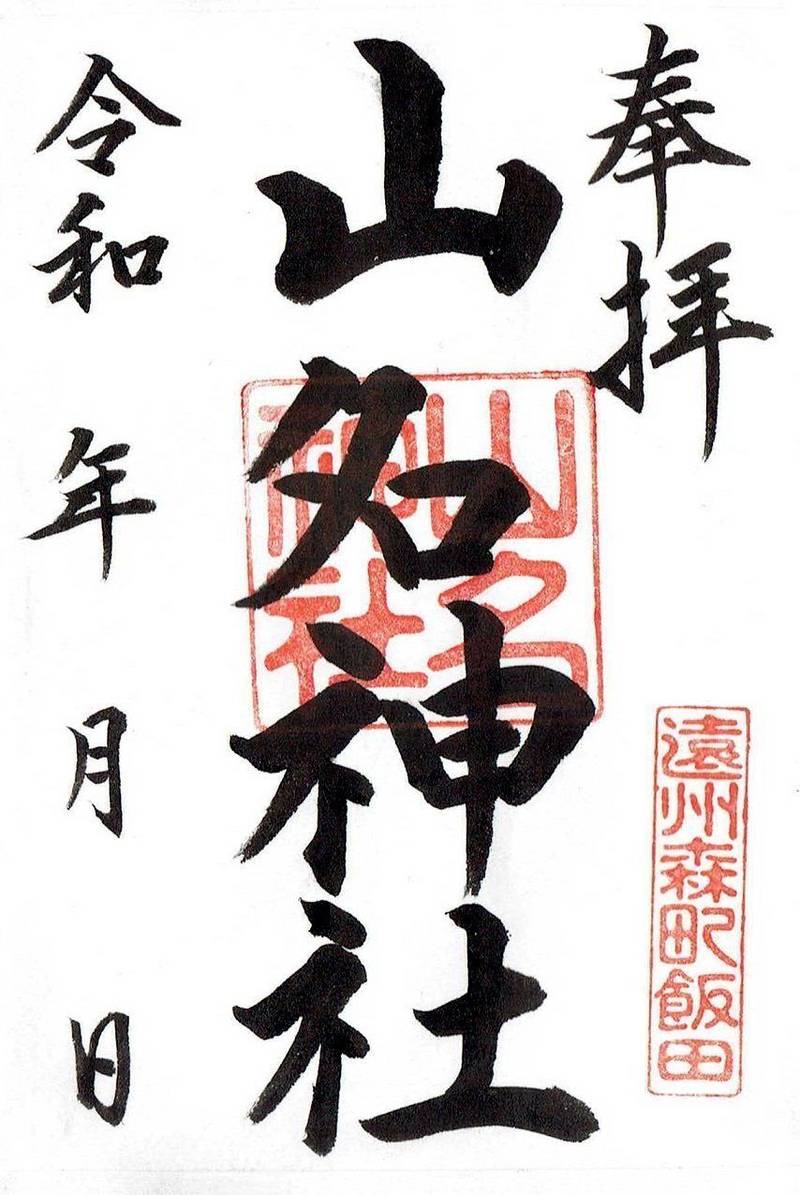 奉拝
遠州森町飯田
山名神社
山名
神社
令和 年 月 日